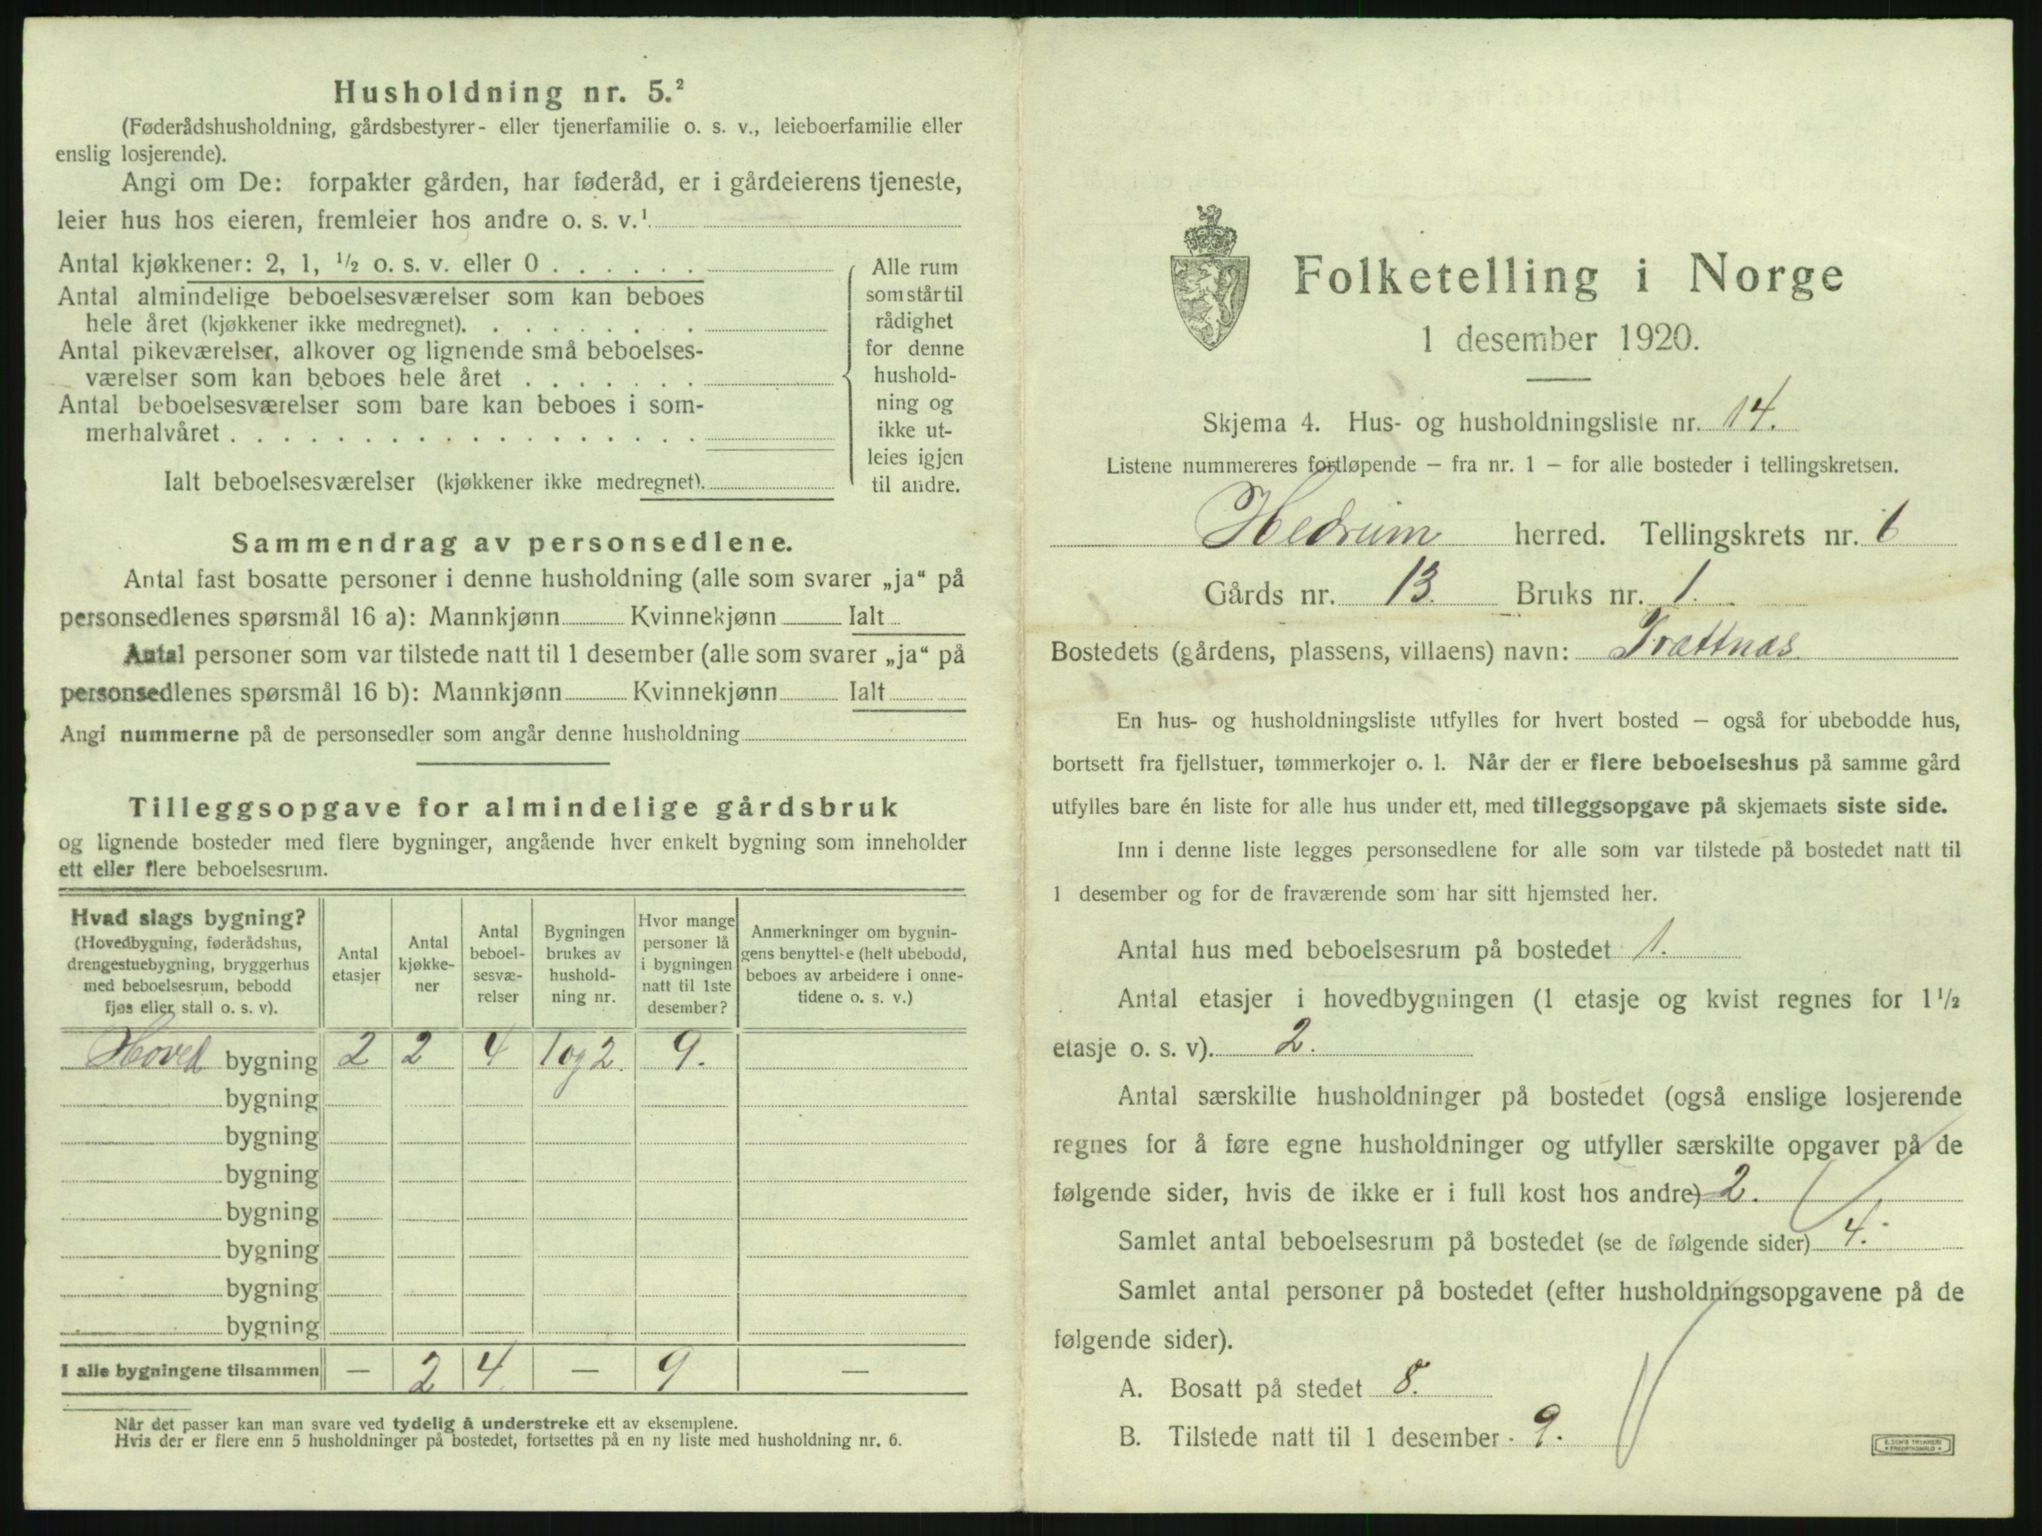 Husholdning nr. 5.²
(Føderådshusholdning, gårdsbestyrer- eller tjenerfamilie o. s. v., leieboerfamilie eller
enslig losjerende).
Angi om De: forpakter gården, har føderåd, er i gårdeierens tjeneste,
leier hus hos eieren, fremleier hos andre o. s. v.¹
Antal kjøkkener: 2, 1, ½ o. s. v. eller 0
Antal almindelige beboelsesværelser som kan beboes
hele året (kjøkkener ikke medregnet).
Antal pikeværelser, alkover og lignende små beboelses-
værelser som kan beboes hele året
Antal beboelsesværelser som bare kan beboes i som-
merhalvåret
Ialt beboelsesværelser (kjøkkener ikke medregnet).
Alle rum
som står til
rådighet
for denne
hushold-
ning og
ikke ut-
leies igjen
til andre.
Sammendrag av personsedlene.
Antal fast bosatte personer i denne husholdning (alle som svarer „ja“ på
personsedlenes spørsmål 16 a): Mannkjønn Kvinnekjønn Ialt
Antal personer som var tilstede natt til 1 desember (alle som svarer „ja“ på
personsedlenes spørsmål 16 b): Mannkjønn Kvinnekjønn Ialt
Angi nummerne på de personsedler som angår denne husholdning
Tilleggsopgave for almindelige gårdsbruk
og lignende bosteder med flere bygninger, angående hver enkelt bygning som inneholder
ett eller flere beboelsesrum.
Hvad slags bygning?
(Hovedbygning, føderådshus,
drengestuebygning, bryggerhus
med beboelsesrum, bebodd
fjøs eller stall o. s. v).
Antal
etasjer
Antal
kjøkke-
ner
Antal
beboel-
sesvæ-
relser
Bygningen
brukes av
hushold-
ning nr.
Hvor mange
personer lå
i bygningen
natt til 1ste
desember?
Anmerkninger om bygnin-
gens benyttelse (helt ubebodd,
beboes av arbeidere i onne-
tidene o. s. v.)
Hoved bygning 2 2 4 1 og 2. 9.
bygning
bygning
bygning
bygning
bygning
bygning
bygning
I alle bygningene tilsammen — 2 4. — 9 —
Når det passer kan man svare ved tydelig å understreke ett av eksemplene.
Hvis der er flere enn 5 husholdninger på bostedet, fortsettes på en ny liste med husholdning nr. 6.
Folketelling i Norge
1 desember 1920.
Skjema 4. Hus- og husholdningsliste nr. 14.
Listene nummereres fortløpende – fra nr. 1 – for alle bosteder i tellingskretsen.
Hedrum herred. Tellingskrets nr. 6
Gårds nr. 13. Bruks nr. 1.
Bostedets (gårdens, plassens, villaens) navn: Trættnes
En hus- og husholdningsliste utfylles for hvert bosted – også for ubebodde hus,
bortsett fra fjellstuer, tømmerkojer o. l. Når der er flere beboelseshus på samme gård
utfylles bare én liste for alle hus under ett, med tilleggsopgave på skjemaets siste side.
Inn i denne liste legges personsedlene for alle som var tilstede på bostedet natt til
1 desember og for de fraværende som har sitt hjemsted her.
Antal hus med beboelsesrum på bostedet 1.
Antal etasjer i hovedbygningen (1 etasje og kvist regnes for 1½
etasje o. s. v). 2.
Antal særskilte husholdninger på bostedet (også enslige losjerende
regnes for å føre egne husholdninger og utfyller særskilte opgaver på de
følgende sider, hvis de ikke er i full kost hos andre) 2.
Samlet antal beboelsesrum på bostedet (se de følgende sider) 4.
Samlet antal personer på bostedet (efter husholdningsopgavene på de
følgende sider).
A. Bosatt på stedet 8.
B. Tilstede natt til 1 desember 9.